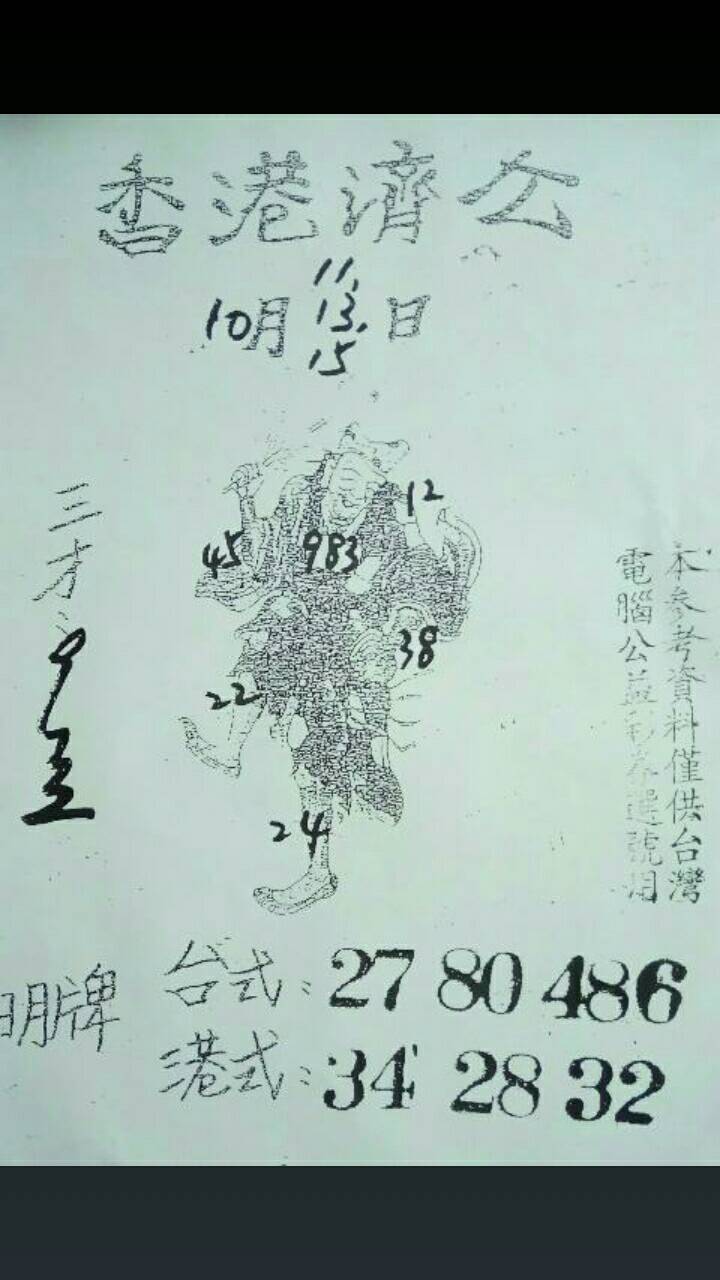 香港濟公
11.
10月 13. 日
15
12
45
983
38
22
24
三才:
本參考資料僅供台灣
電腦公益彩券選號用
明牌
台式: 27 80 486
港式: 34 28 32